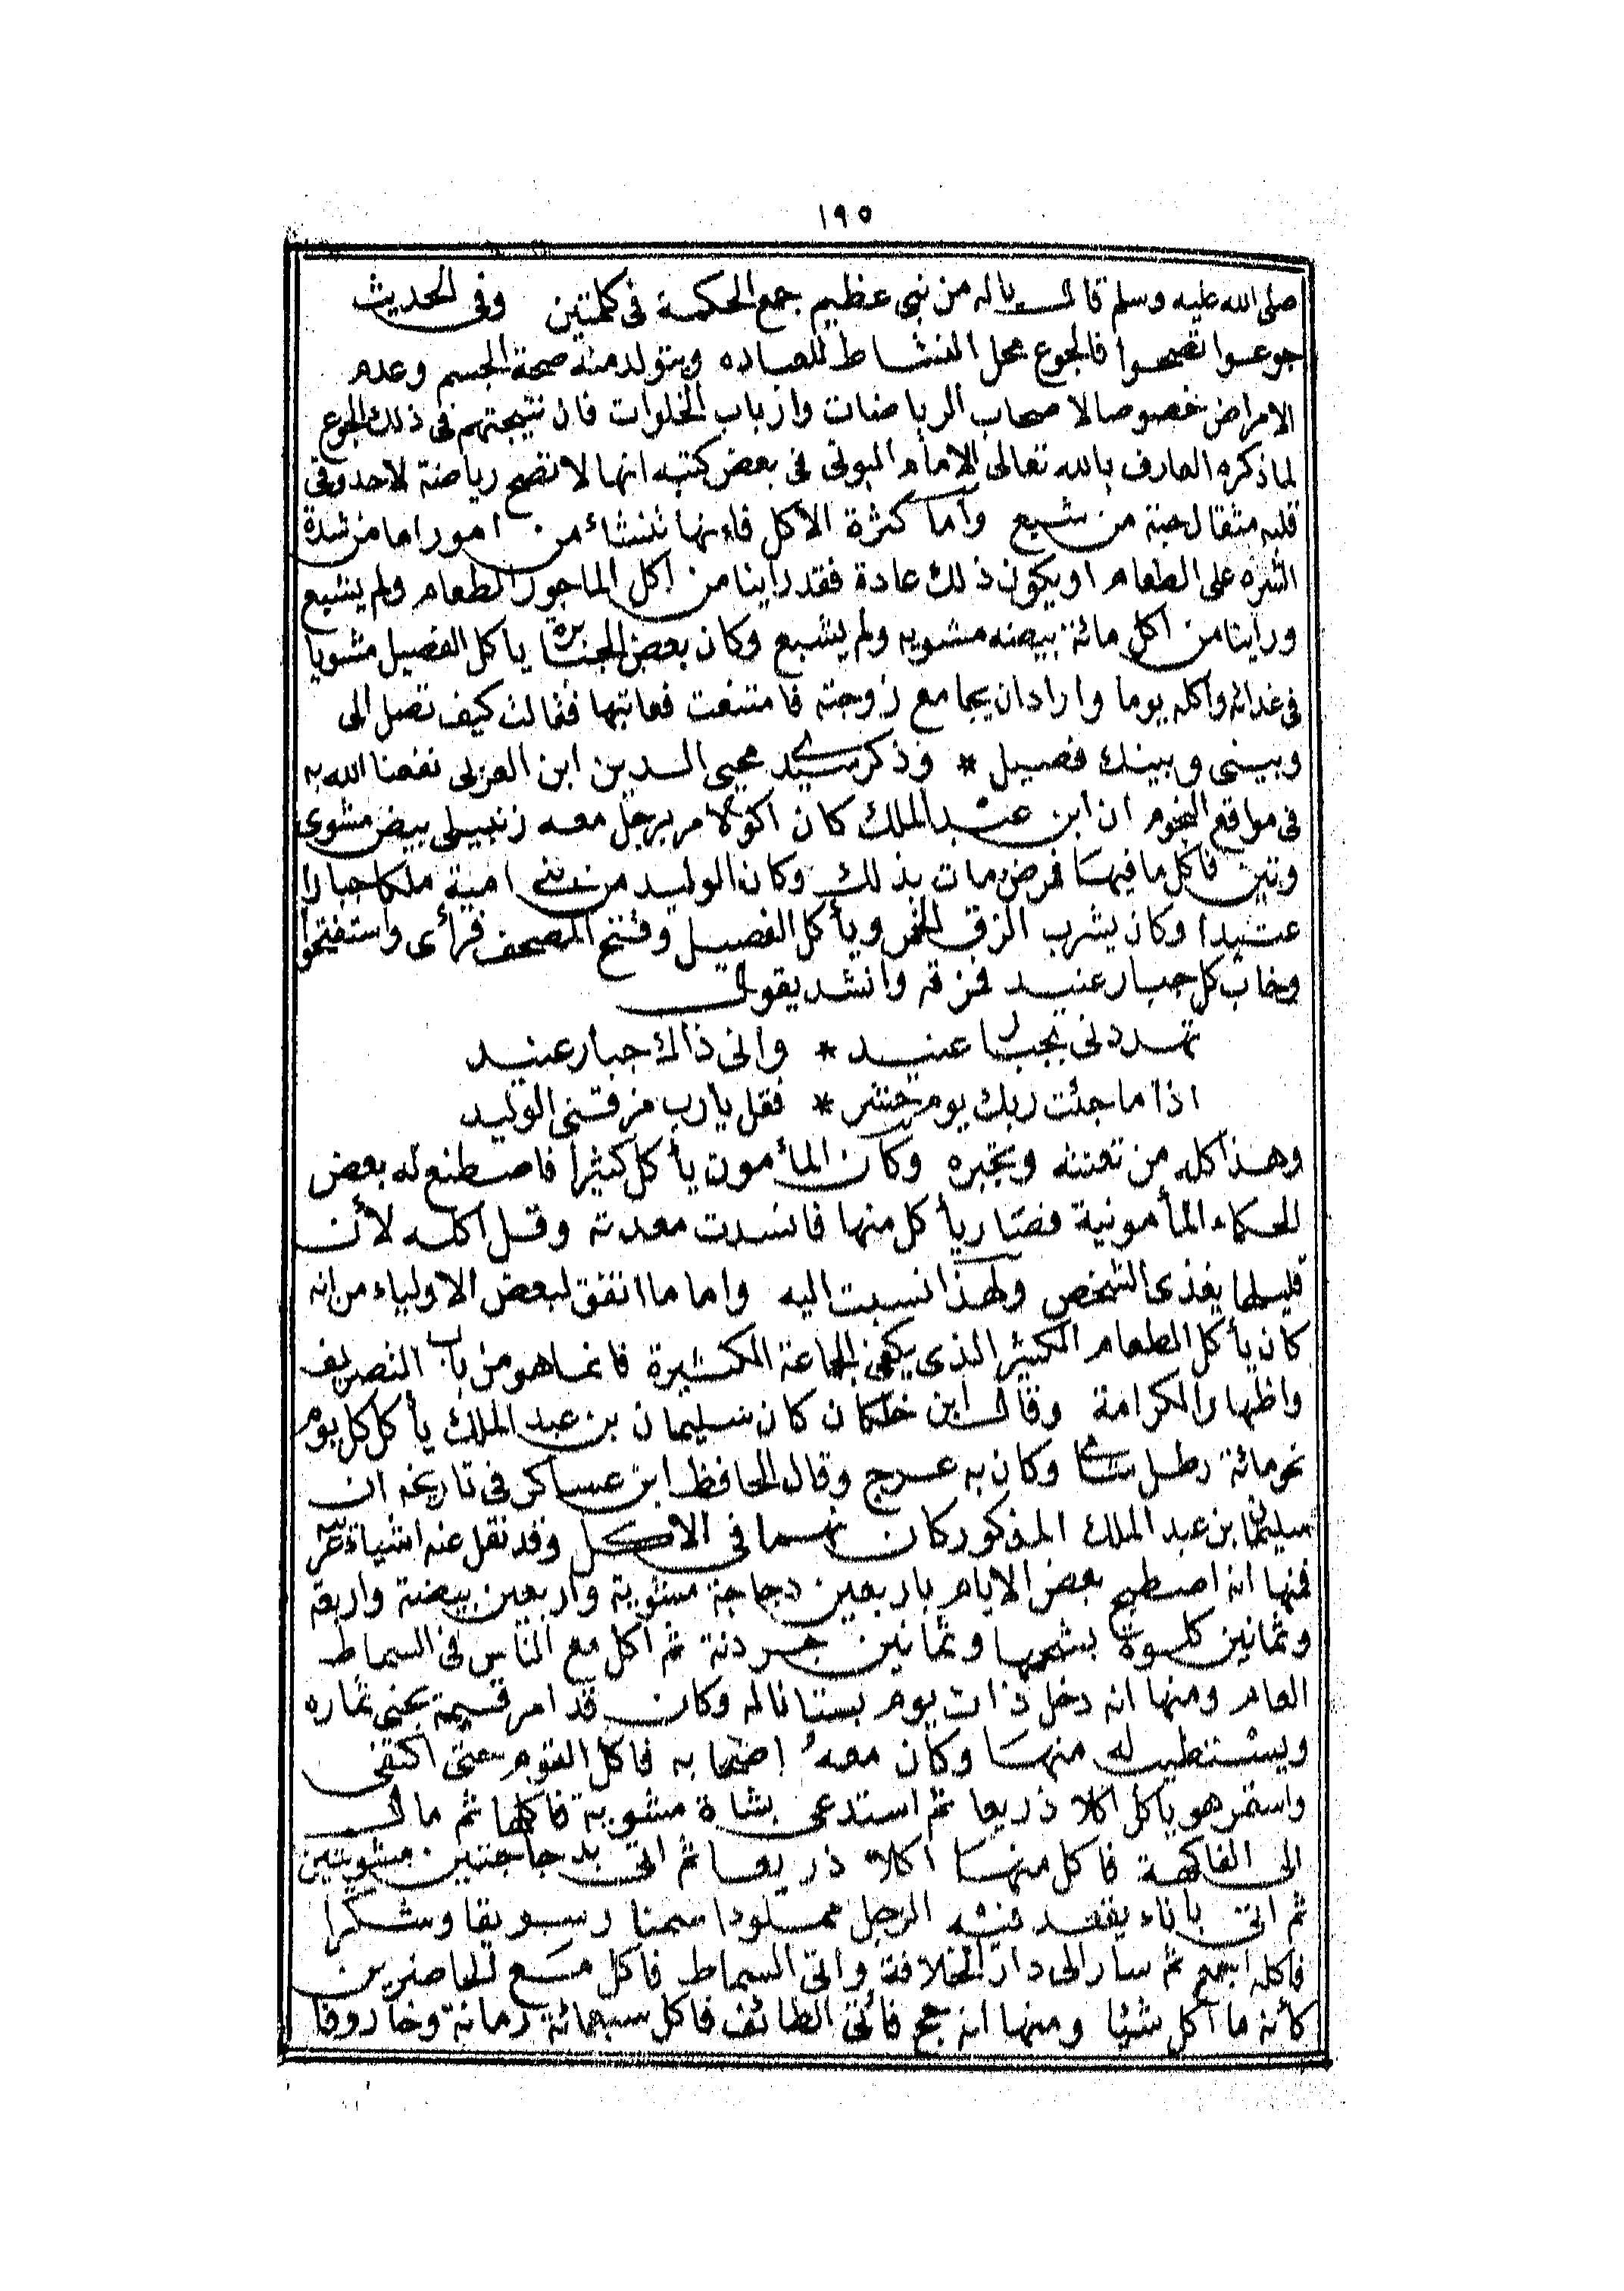 ١٩٥
صلى الله عليه وسلم قال ياله من نبى عظيم جمع الحكمة فى كلمتين وفى الحديث
جوعوا تصحوا فالجوع محل النشاط للعباده ويتولد منه صحة الجسم وعدم
الامراض خصوصا لاصحاب الرياضات وارباب الخلوات فان نتيجتهم فى ذلك الجوع
لما ذكره العارف بالله تعالى الامام البونى فى بعض كتبه انها لا تصح رياضة لاحد وفى
قلبه مثقال حبة من شبع وأما كثرة الأكل فاءنها تنشاء من امور اما من شدة
الشره على الطعام او يكون ذلك عادة فقد راينا من اكل الماجور الطعام ولم يشبع
وراينا من اكل مائة بيضه مشويه ولم يشبع وكان بعض الجبابرة ياكل الفصيل مشويا
فى غدائه واكله يوما وارادان يجامع زوجته فامتنعت فعاتبها فقالت كيف تصل الى
وبينى وبينك فصيل * وذكر سيدى محيى الدين ابن العربى نفعنا الله به
فى مواقع النجوم ان ابن عبد الملك كان اكولا مر برجل معه زنبيلى بيض مشوى
وتين فاكل ما فيها فمرض ومات بذلك وكان الوليد من بنى امية ملكا جبارا
عتيدا وكان يشرب الزق الخمر ويأكل الفصيل وفتح المصحف فرأى واستفتحوا
وخاب كل جبار عنيد فمزقه وانشد يقول
تهددنى بجبار عنيد * وانى ذاك جبار عنيد
اذا ما جئت ربك يوم حشر * فقل يارب مزقنى الوليد
وهذا كله من تعنته وتجبره وكان المأمون يأكل كثيرا فاصطنع له بعض
الحكماء المأمونية فصار يأكل منها فانسدت معدته وقل اكله لأن
قليلها يغذى الشخص ولهذا نسبت اليه واما ما اتفق لبعض الاولياء من انه
كان يأكل الطعام الكثير الذى يكفى الجماعة الكثيرة فانما هو من باب التصريف
واظهار الكرامة وقال ابن خلكان كان سليمان بن عبد الملك يأكل كل يوم
نحو مائة رطل شامى وكان به عرج وقال الحافظ ابن عساكر فى تاريخه ان
سليمان بن عبد الملك المذكور كان نهما فى الاكل وقد نقل عنه اشياء غريبه
فمنها انه اصطبح بعض الايام باربعين دجاجة مشوية واربعين بيضة واربعة
وثمانين كلوة بشحمها وثمانين جردنة ثم اكل مع الناس فى السماط
العام ومنها انه دخل ذات يوم بستانا له وكان قد امر قيمه بجنى ثماره
ويستطيب له منها وكان معه اصحابه فاكل القوم حتى اكتفى
واستمر هو ياكل اكلا ذريعا ثم استدعى بشاة مشوية فأكلها ثم مال
الى الفاكهة فاكل منها اكلا ذريعا ثم اتى بدجاجتين مشويتين
ثم اتى باناء يقعد فيه الرجل مملودا سمنا وسويقا وسكرا
فاكله اجمع ثم سار الى دار الخلافة وأتى السماط فاكل مع الحاضرين
كأنه ما اكل شيئا ومنها انه حج فأتى الطائف فاكل سبعمائة رمانة وخاروفا